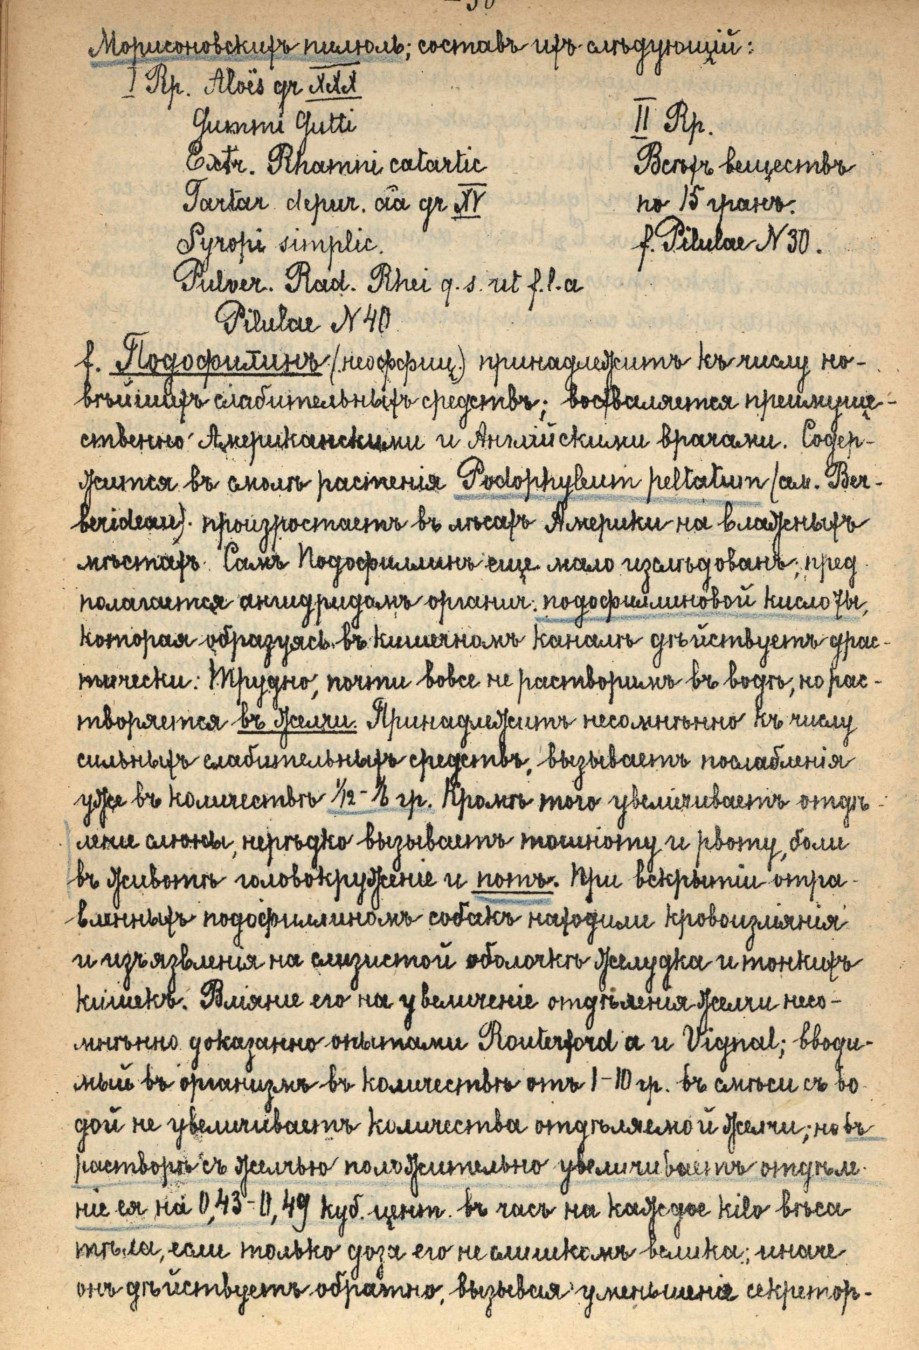 Морисоновскихъ пилюль; составъ ихъ слѣдующій:
I Rp. Aloës gr XXX
Gummi Gutti
Extr. Rhamni catartic
Tartar depur. aa gr XV
Syropi simplic.
Pulver. Rad. Rhei q. s. ut f. l. a
Pilulae N 40
II Rp.
Всѣхъ веществъ
по 15 гранъ.
f. Pilulae N 30.
f. Подофилинъ (неоффиц.) принадлежитъ къ числу но-
вѣйшихъ слабительныхъ средствъ; восхваляется преимуще-
ственно Американскими и Англійскими врачами. Содер-
жится въ смолѣ растенія Podophyleum peltatum (см. Ber-
berideau). произростаетъ въ лѣсахъ Америки на влажныхъ
мѣстахъ. Самъ Подофиллинъ еще мало изслѣдованъ; пред
полагается ангидридомъ органич. подофиллиновой кислоты,
которая образуясь въ кишечномъ каналѣ дѣйствуетъ драс-
тически. Трудно, почти вовсе не растворимъ въ водѣ, но рас-
творяется въ желчи. Принадлежитъ несомнѣнно къ числу
сильныхъ слабительныхъ средствъ, вызываетъ послабленія
уже въ количествѣ 1/12 - гр. Кромѣ того увеличиваетъ отдѣ-
леніе слюны, нерѣдко вызываетъ тошноту и рвоту, боли
въ животѣ головокруженіе и потъ. При вскрытіи отра-
вленныхъ подофиллиномъ собакъ находили кровоизліянія
и изъязвленія на слизистой оболочкѣ желудка и тонкихъ
кишекъ. Вліяніе его на увеличеніе отдѣленія желчи несо-
мнѣнно доказанно опытами Routerford а и Vignal; вводи-
мый въ организмъ въ количествѣ отъ 1-10 гр. въ смѣси съ во
дой не увеличиваетъ количества отдѣляемой желчи; но въ
растворѣ съ желчью положительно увеличиваетъ отдѣле-
ніе ея на 0,43-0,49 куб. цент. въ часъ на каждое kilo вѣса
тѣла, если только доза его не слишкомъ велика; иначе
онъ дѣйствуетъ обратно, вызывая уменьшеніе секретор-